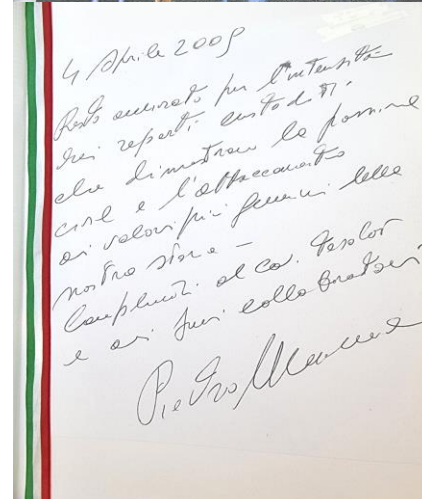 4 Aprile 2009
Resto ammirato per l'intensità
dei reperti custoditi
che dimostrano la passione
civile e l'attaccamento
ai valori più genuini della
nostra storia -
Complimenti al Cav.
e ai suoi collaboratori
Pietro